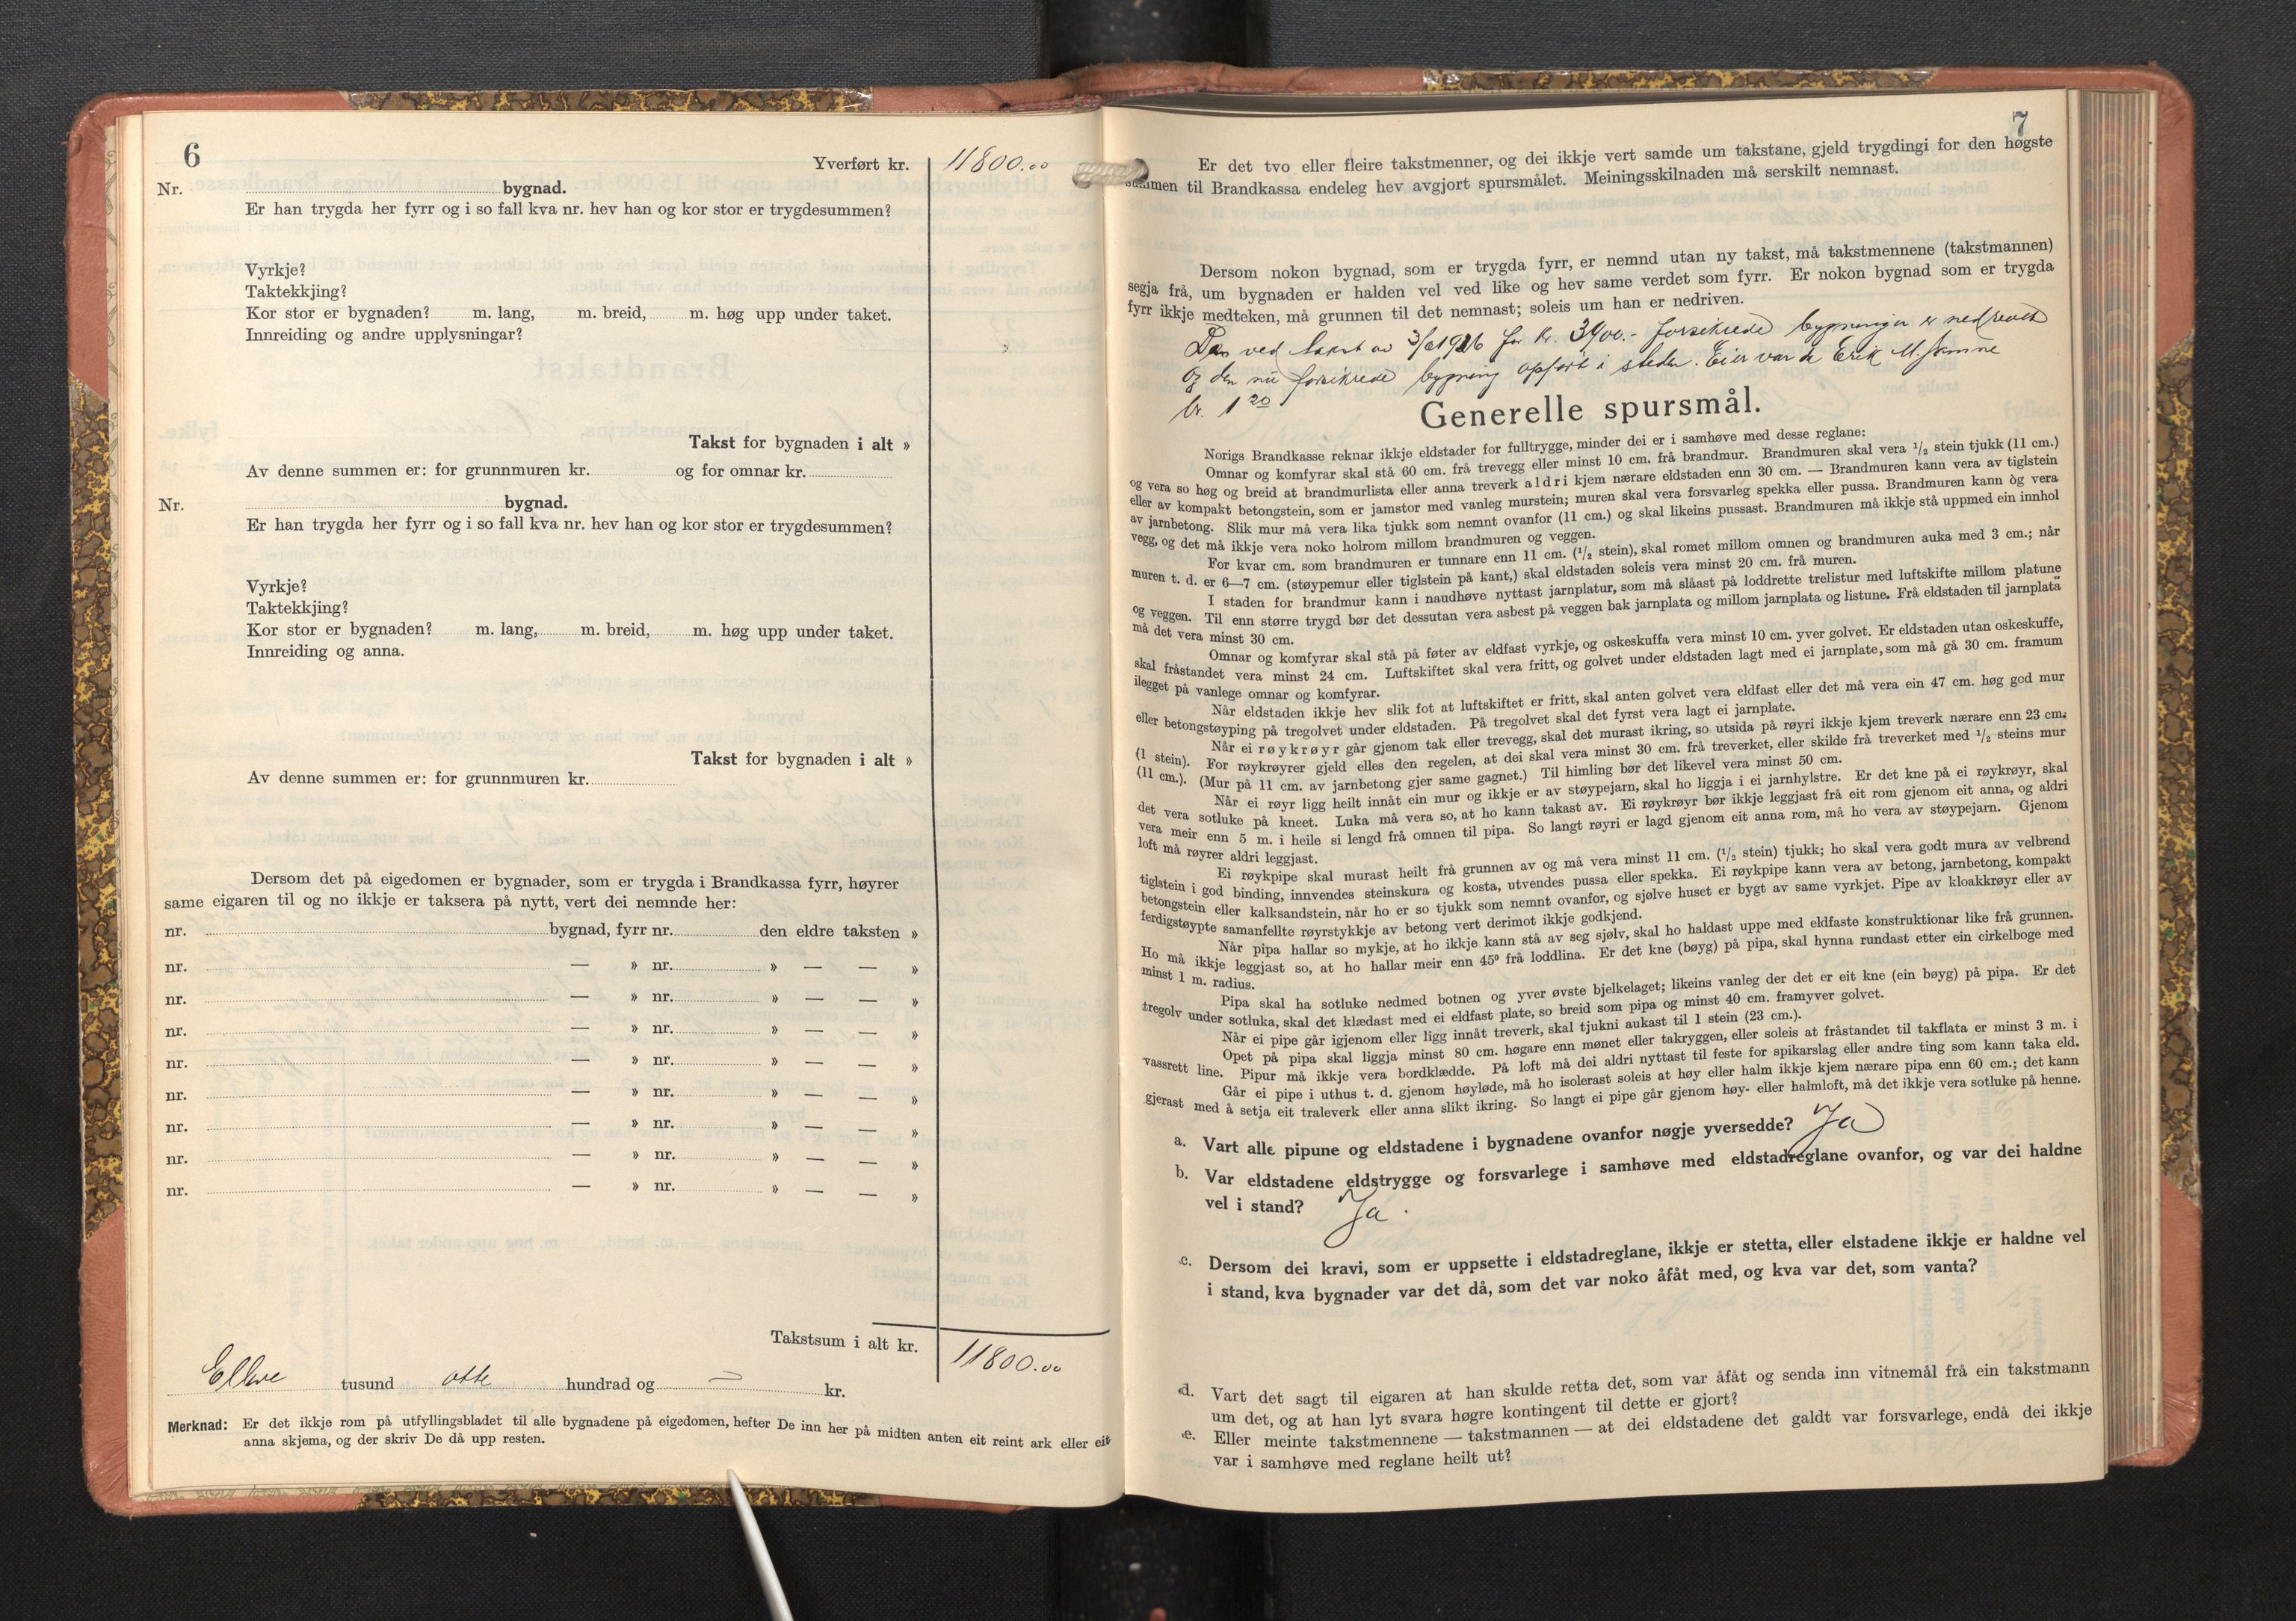 6
Yverført kr. 11800.00
Nr. bygnad.
Er han trygda her fyrr og i so fall kva nr. hev han og kor stor er trygdesummen?
Vyrkje?
Taktekkjing?
Kor stor er bygnaden? m. lang, m. breid, m. høg upp under taket.
Innreiding og andre upplysningar?
Takst for bygnaden i alt »
Av denne summen er: for grunnmuren kr. og for omnar kr.
Nr. bygnad.
Er han trygda her fyrr og i so fall kva nr. hev han og kor stor er trygdesummen?
Vyrkje?
Taktekkjing?
Kor stor er bygnaden? m. lang, m. breid, m. høg upp under taket.
Innreiding og anna.
Takst for bygnaden i alt »
Av denne summen er: for grunnmuren kr.
Dersom det på eigedomen er bygnader, som er trygda i Brandkassa fyrr, høyrer
same eigaren til og no ikkje er taksera på nytt, vert dei nemnde her:
nr. bygnad, fyrr nr. den eldre taksten »
nr. — » nr. » — — »
nr. — » nr. » — — »
nr. — » nr. » — — »
nr. — » nr. » — — »
nr. — » nr. » — — »
nr. — » nr. » — — »
nr. — » nr. » — — »
nr. — » nr. » — — »
Takstsum i alt kr. 11800.00
Elleve tusund otte hundrad og — kr.
Merknad: Er det ikkje rom på utfyllingsbladet til alle bygnadene på eigedomen, hefter De inn her på midten anten eit reint ark eller eit
anna skjema, og der skriv De då upp resten.
7
Er det tvo eller fleire takstmenner, og dei ikkje vert samde um takstane, gjeld trygdingi for den høgste
summen til Brandkassa endeleg hev avgjort spursmålet. Meiningsskilnaden må serskilt nemnast.
Dersom nokon bygnad, som er trygda fyrr, er nemnd utan ny takst, må takstmennene (takstmannen)
segja frå, um bygnaden er halden vel ved like og hev same verdet som fyrr. Er nokon bygnad som er trygda
fyrr ikkje medteken, må grunnen til det nemnast; soleis um han er nedriven.
Den ved takst av 1926 for kr. 3900.- forsikrede bygninger er nedrevet
og den nu forsikrede bygning opført i steden. Eier var da Erik M.
br. 1 20
Generelle spursmål.
Norigs Brandkasse reknar ikkje eldstader for fulltrygge, minder dei er i samhøve med desse reglane:
Omnar og komfyrar skal stå 60 cm. frå trevegg eller minst 10 cm. frå brandmur. Brandmuren skal vera 1/2 stein tjukk (11 cm.)
og vera so høg og breid at brandmurlista eller anna treverk aldri kjem nærare eldstaden enn 30 cm. — Brandmuren kann vera av tiglstein
eller av kompakt betongstein, som er jamstor med vanleg murstein; muren skal vera forsvarleg spekka eller pussa. Brandmuren kann òg vera
av jarnbetong. Slik mur må vera lika tjukk som nemnt ovanfor (11 cm.) og skal likeins pussast. Brandmuren må ikkje stå uppmed ein innhol
vegg, og det må ikkje vera noko holrom millom brandmuren og veggen.
For kvar cm. som brandmuren er tunnare enn 11 cm. (1/2 stein), skal romet millom omnen og brandmuren auka med 3 cm.; når
muren t. d. er 6—7 cm. (støypemur eller tiglstein på kant,) skal eldstaden soleis vera minst 20 cm. frå muren.
I staden for brandmur kann i naudhøve nyttast jarnplatur, som må slåast på loddrette trelistur med luftskifte millom platune
og veggen. Til enn større trygd bør det dessutan vera asbest på veggen bak jarnplata og millom jarnplata og listune. Frå eldstaden til jarnplata
må det vera minst 30 cm.
Omnar og komfyrar skal stå på føter av eldfast vyrkje, og oskeskuffa vera minst 10 cm. yver golvet. Er eldstaden utan oskeskuffe,
skal fråstandet vera minst 24 cm. Luftskiftet skal vera fritt, og golvet under eldstaden lagt med ei jarnplate, som må gå 30 cm. framum
ilegget på vanlege omnar og komfyrar.
Når eldstaden ikkje hev slik fot at luftskiftet er fritt, skal anten golvet vera eldfast eller det må vera ein 47 cm. høg god mur
eller betongstøyping på tregolvet under eldstaden. På tregolvet skal det fyrst vera lagt ei jarnplate.
Når ei røykrøyr går gjenom tak eller trevegg, skal det murast ikring, so utsida på røyri ikkje kjem treverk nærare enn 23 cm.
(1 stein). For røykrøyrer gjeld elles den regelen, at dei skal vera minst 30 cm. frå treverket, eller skilde frå treverket med 1/2 steins mur
(11 cm.). (Mur på 11 cm. av jarnbetong gjer same gagnet.) Til himling bør det likevel vera minst 50 cm.
Når ei røyr ligg heilt innåt ein mur og ikkje er av støypejarn, skal ho liggja i ei jarnhylstre. Er det kne på ei røykrøyr, skal
det vera sotluke på kneet. Luka må vera so, at ho kann takast av. Ei røykrøyr bør ikkje leggjast frå eit rom gjenom eit anna, og aldri
vera meir enn 5 m. i heile si lengd frå omnen til pipa. So langt røyri er lagd gjenom eit anna rom, må ho vera av støypejarn. Gjenom
loft må røyrer aldri leggjast.
Ei røykpipe skal murast heilt frå grunnen av og må vera minst 11 cm. (1/2 stein) tjukk; ho skal vera godt mura av velbrend
tiglstein i god binding, innvendes steinskura og kosta, utvendes pussa eller spekka. Ei røykpipe kann vera av betong, jarnbetong, kompakt
betongstein eller kalksandstein, når ho er so tjukk som nemnt ovanfor, og sjølve huset er bygt av same vyrkjet. Pipe av kloakkrøyr eller av
ferdigstøypte samanfellte røyrstykkje av betong vert derimot ikkje godkjend.
Når pipa hallar so mykje, at ho ikkje kann stå av seg sjølv, skal ho haldast uppe med eldfaste konstruktionar like frå grunnen.
Ho må ikkje leggjast so, at ho hallar meir enn 45° frå loddlina. Er det kne (bøyg) på pipa, skal hynna rundast etter ein cirkelboge med
minst 1 m. radius.
Pipa skal ha sotluke nedmed botnen og yver øvste bjelkelaget; likeins vanleg der det er eit kne (ein bøyg) på pipa. Er det
tregolv under sotluka, skal det klædast med ei eldfast plate, so breid som pipa og minst 40 cm. framyver golvet.
Når ei pipe går igjenom eller ligg innåt treverk, skal tjukni aukast til 1 stein (23 cm.).
Opet på pipa skal liggja minst 80 cm. høgare enn mønet eller takryggen, eller soleis at fråstandet til takflata er minst 3 m. i
vassrett line. Pipur må ikkje vera bordklædde. På loft må dei aldri nyttast til feste for spikarslag eller andre ting som kann taka eld.
Går ei pipe i uthus t. d. gjenom høyløde, må ho isolerast soleis at høy eller halm ikkje kjem nærare pipa enn 60 cm.; det kann
gjerast med å setja eit traleverk eller anna slikt ikring. So langt ei pipe går gjenom høy- eller halmloft, må det ikkje vera sotluke på henne.
a. Vart alle pipune og eldstadene i bygnadene ovanfor nøgje yversedde? Ja
b. Var eldstadene eldstrygge og forsvarlege i samhøve med eldstadreglane ovanfor, og var dei haldne
vel i stand? Ja.
c. Dersom dei kravi, som er uppsette i eldstadreglane, ikkje er stetta, eller elstadene ikkje er haldne vel
i stand, kva bygnader var det då, som det var noko åfåt med, og kva var det, som vanta?
d. Vart det sagt til eigaren at han skulde retta det, som var åfåt og senda inn vitnemål frå ein takstmann
um det, og at han lyt svara høgre kontingent til dette er gjort?
e. Eller meinte takstmennene — takstmannen — at dei eldstadene det galdt var forsvarlege, endå dei ikkje
var i samhøve med reglane heilt ut?